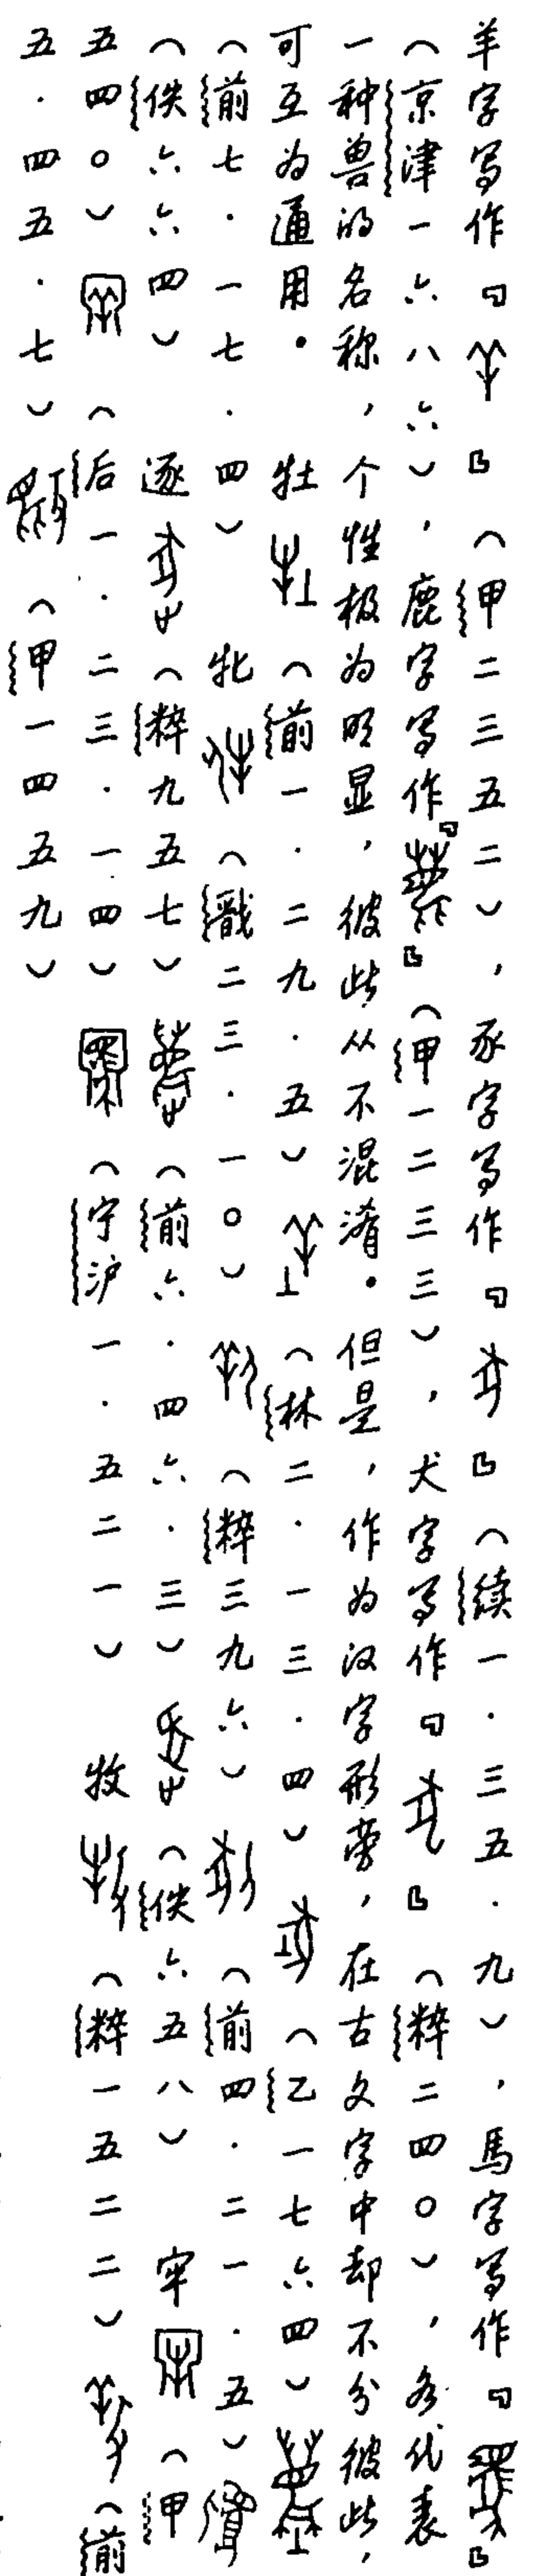 羊字写作「」（甲二三五二），豕字写作「」（续一·三五·九），馬字写作「」
（京津一六八六），鹿字写作「」（甲一二三三），犬字写作「」（粹二四〇），各代表
一种兽的名称，个性极为明显，彼此从不混淆。但是，作为汉字形旁，在古文字中却不分彼此，
可互为通用。牡（前一·二九·五）（林二·一三·四）（乙一七六四）
（前七·一七·四）牝（戬二三·一〇）（粹三九六）（前四·二一·五）
（佚六六四）逐（粹九五七）（前六·四六·三）（佚六五八）牢（甲
五四〇）（后一·二三·一四）（宁沪一·五二一）牧（粹一五二二）（前
五·四五·七）（甲一四五九）